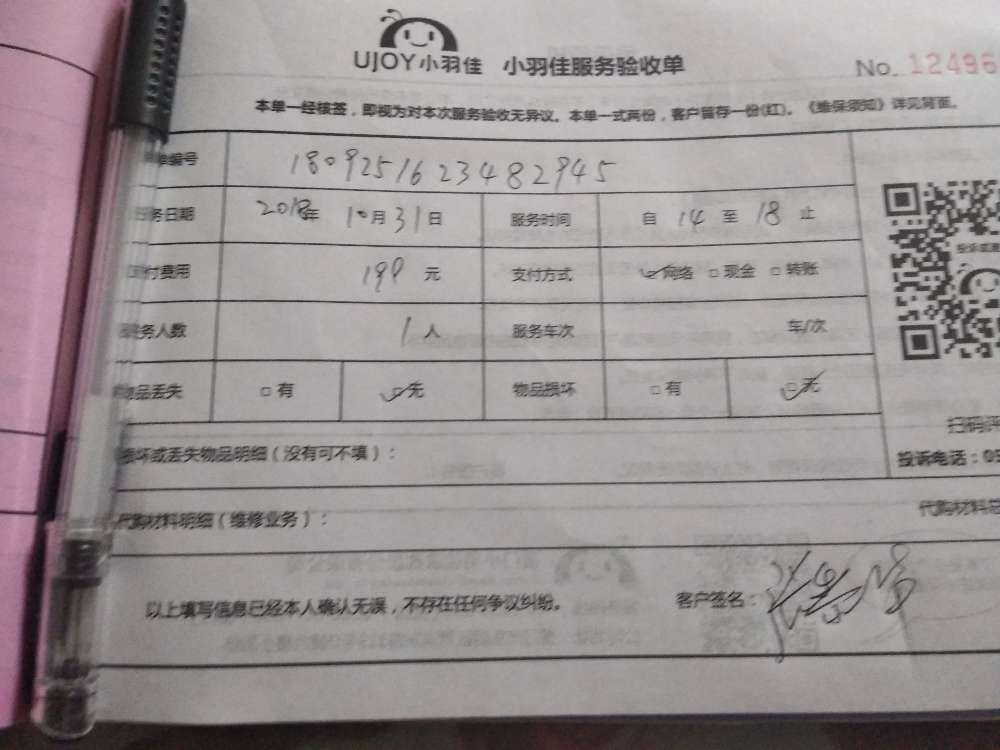 UJOY小羽佳 小羽佳服务验收单 No. 12496
本单一经核签，即视为对本次服务验收无异议。本单一式两份，客户留存一份(红)。《维保须知》详见背面。
单编号 1809251623482945
务日期 2018年 10月31日 服务时间 自 14 至 18 止
付费用 199 元 支付方式 ☑网络 □现金 □转账
务人数 1人 服务车次 车/次
物品丢失 □有 ☑无 物品损坏 □有 ☑无
扫码评
损坏或丢失物品明细（没有可不填）： 投诉电话：05
代购材料明细（维修业务）： 代购材料总
以上填写信息已经本人确认无误，不存在任何争议纠纷。 客户签名：